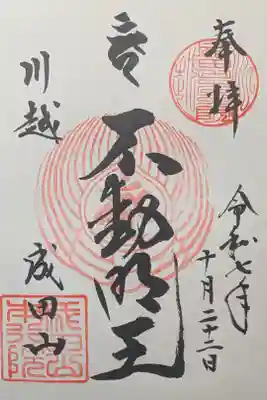 奉拝
令和七年
十月二十二日
不動明王
川越
成田山